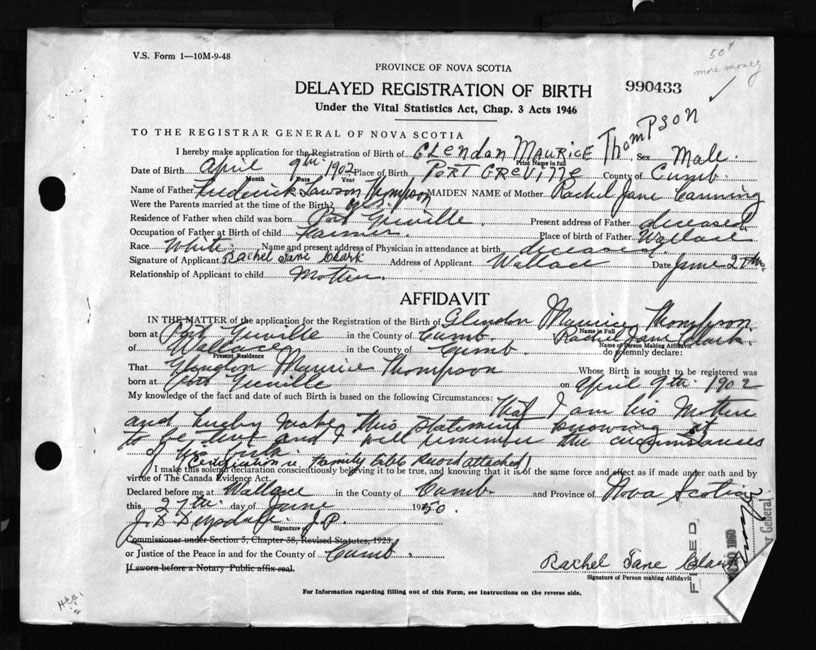 V.S. Form 1—10M-9-48
50¢
more money
PROVINCE OF NOVA SCOTIA
DELAYED REGISTRATION OF BIRTH
990433
Under the Vital Statistics Act, Chap. 3 Acts 1946
TO THE REGISTRAR GENERAL OF NOVA SCOTIA
I hereby make application for the Registration of Birth of GLendan MAURICE THOMPSON Sex Male.
Print Name in full
Date of Birth April 9th. 1902 Place of Birth PORT GREVILLE County of Cumb.
Month Date Year
Name of Father Frederick Lawson Thompson MAIDEN NAME of Mother Rachel Jane Canning
Were the Parents married at the time of Birth? yes.
Residence of Father when child was born Port Greville. Present address of Father deceased
Occupation of Father at Birth of child Farmer. Place of birth of Father Wallace
Race White. Name and present address of Physician in attendance at birth deceased.
Signature of Applicant Rachel Jane Clark Address of Applicant Wallace Date June 27th.
Relationship of Applicant to child Mother.
AFFIDAVIT
IN THE MATTER of the application for the Registration of the Birth of Glendon Maurice Thompson
Name in Full
born at Port Greville in the County of Cumb. Rachel Jane Clark.
Name of Person Making Affidavit
of Wallace in the County of Cumb. do solemnly declare:
Present Residence
That Glendon Maurice Thompson Whose Birth is sought to be registered was
born at Port Greville on April 9th. 1902
My knowledge of the fact and date of such Birth is based on the following Circumstances: That I am his Mother
and hereby make this statement knowing it
to be true and I will remember the circumstances
of his birth
(Certification in family bible record attached)
I make this solemn declaration conscientiously believing it to be true, and knowing that it is of the same force and effect as if made under oath and by
virtue of The Canada Evidence Act.
Declared before me at Wallace in the County of Cumb. and Province of Nova Scotia
this 27th. day of June 1950.
J.P.
Signature of
Commissioner under Section 5, Chapter 38, Revised Statutes, 1923
or Justice of the Peace in and for the County of Cumb.
If sworn before a Notary Public affix seal.
Rachel Jane Clark
Signature of Person making Affidavit
FILED
For Information regarding filling out of this Form, see Instructions on the reverse side.